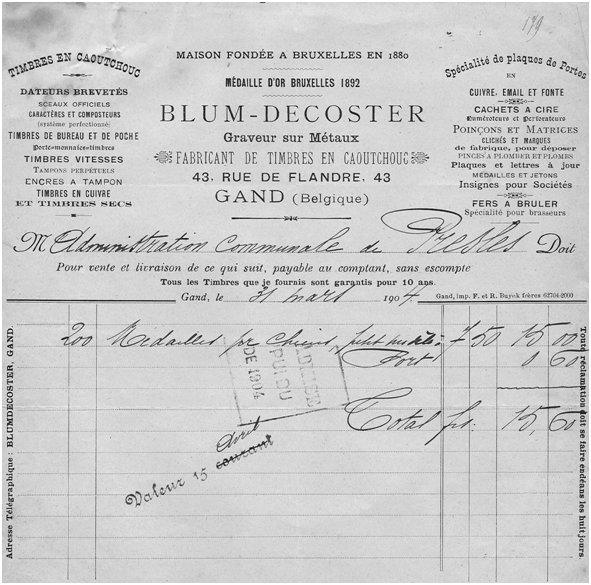 179
TIMBRES EN CAOUTCHOUC
DATEURS BREVETÉS
SCEAUX OFFICIELS
CARACTÈRES ET COMPOSTEURS
(système perfectionné)
TIMBRES DE BUREAU ET DE POCHE
Porte-monnaies-timbres
TIMBRES VITESSES
TAMPONS PERPÉTUELS
ENCRES A TAMPON
TIMBRES EN CUIVRE
ET TIMBRES SECS
MAISON FONDÉE A BRUXELLES EN 1880
MÉDAILLE D'OR BRUXELLES 1892
BLUM-DECOSTER
Graveur sur Métaux
FABRICANT DE TIMBRES EN CAOUTCHOUC
43, RUE DE FLANDRE, 43
GAND (Belgique)
Spécialité de plaques de Portes
EN
CUIVRE, EMAIL ET FONTE
CACHETS A CIRE
Numéroteurs et Perforateurs
POINÇONS ET MATRICES
CLICHÉS ET MARQUES
de fabrique, pour déposer
PINCES A PLOMBER ET PLOMBS
Plaques et lettres à jour
MÉDAILLES ET JETONS
Insignes pour Sociétés
FERS A BRULER
Spécialité pour brasseurs
M Administration Communale de Presles Doit
Pour vente et livraison de ce qui suit, payable au comptant, sans escompte
Tous les Timbres que je fournis sont garantis pour 10 ans.
Gand, le 31 mars 1904
Gand, imp. F. et R. Buyck frères 62704-2000
200 Médailles pr chiens, petit modèle 7 50 15 00
Port 0 60
Total frs. 15,60
DE 1904
Avril
Valeur 15 courant
Adresse Télégraphique : BLUMDECOSTER, GAND.
Toute réclamation doit se faire endéans les huit jours.